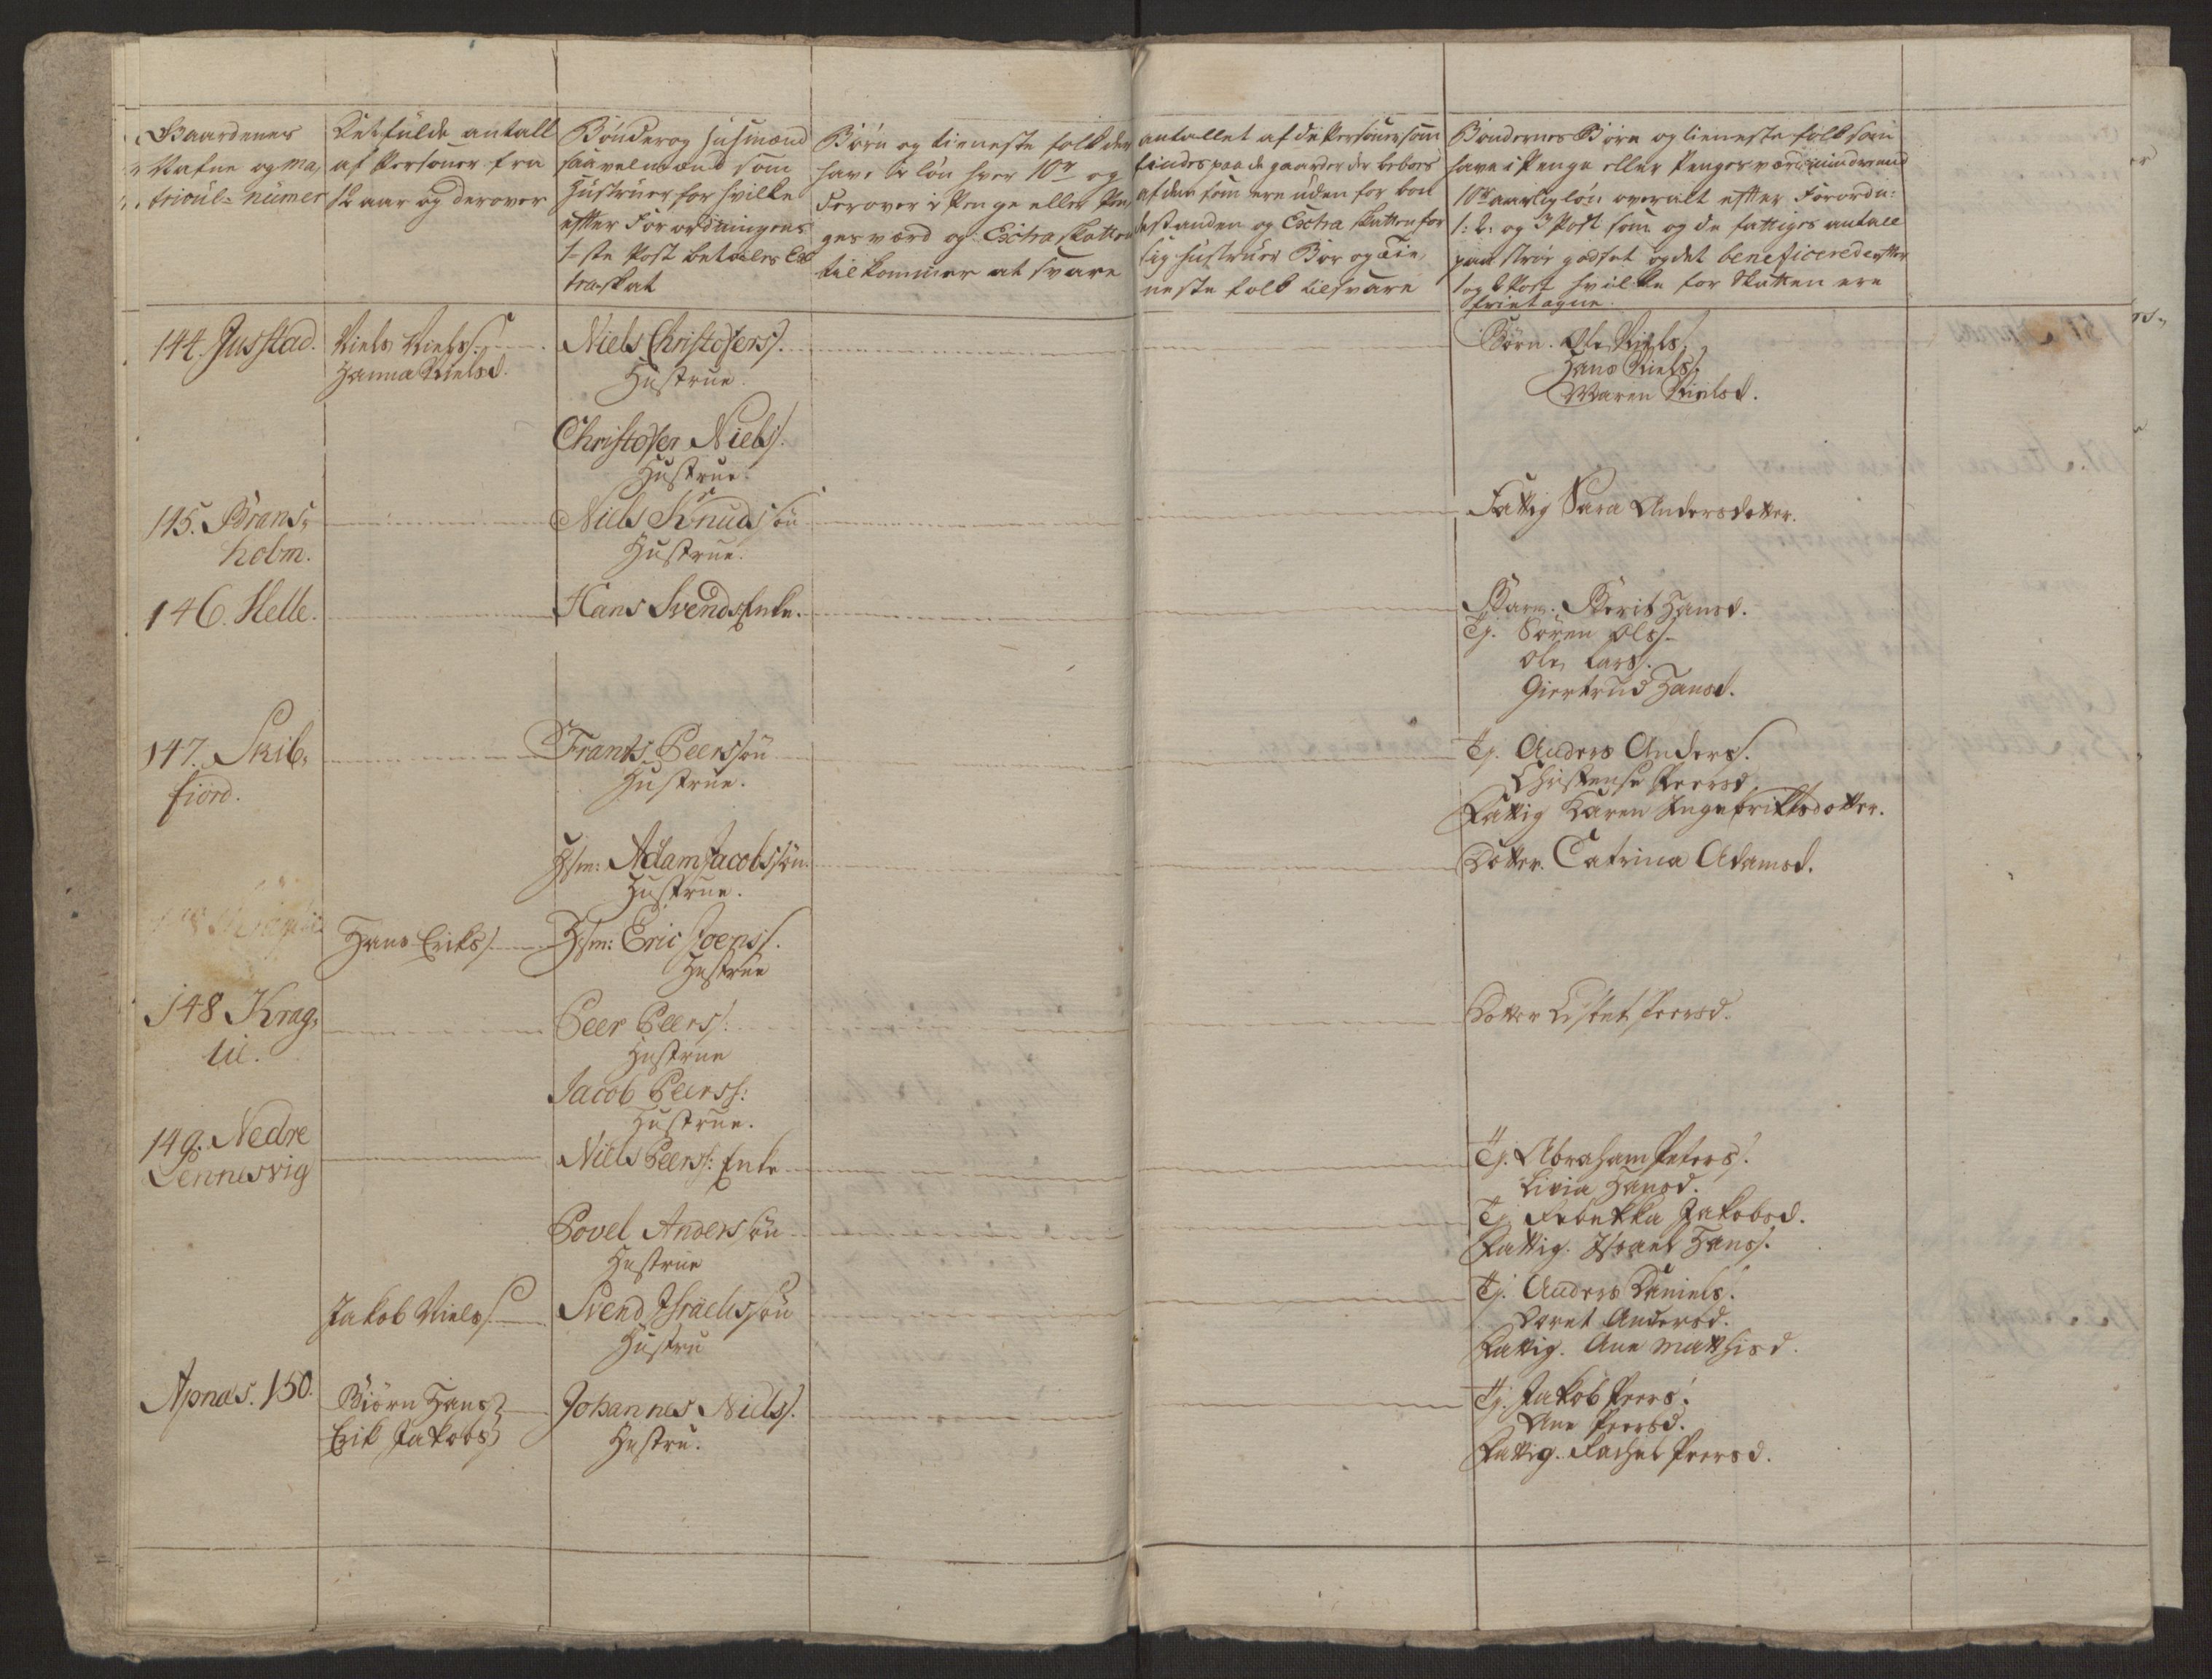 Gaardenes
Nafne og ma,
tricul= numer
Det fulde antall
af Personer fra
12 aar og derover
Bönder og Huusmænd
saavel mænd som
Hustruer for hvilke
efter Forordningens
1=ste Post betales Ex
tra skat
Börn og tieneste folk der
have til lön hver 10 rd og
derover i Penge eller Pen
ges værd og Extra skatten
tilkommer at svare
antallet af de Personer som
findes paa de gaarder der beboes
af dem som ere uden for bon
destanden og Extra skatten for
sig hustruer Bör og Tie,
neste folk til svare
Bondernes Börn og tieneste folk som
have i Penge eller Penges værd mindre end
10 rd aarlig lön overalt efter Forordn:
1: 2: og 3 Post som og de fattiges antall
paa ströe godset og det beneficerede efter
1 og 2 Post hvilke for Skatten ere
frietagne.
144. Jusstad.
Niels Niels:
Hanna Nielsd.
Niels Christofers:
Hustrue.
Börn. Ole Niels:
Hans Niels:
Maren Nielsd.
Christofer Niels:
Hustrue.
145. Brans,
holm.
Niels Knudssön
Hustrue.
Fattig Sara Andersdotter.
146. Helle.
Hans Svends: Enke.
Barn. Berit Hansd.
Tj. Sören Ols:
Ole Lars:
Giertrud Hansd.
147. Skib,
fiord.
Frants Peerssön
Hustrue.
Tj. Anders Anders:
Christense Peersd.
Fattig Karen Ingebrigtsdotter.
Hsm: Adam Jacobssön.
Hustrue.
Dotter. Catrina Adamsd.
Hans Eriks:
Hsm: Eric Joens:
Hustrue
148 Krag,
lie.
Peer Peers:
Hustrue
Dotter Lisbet Peersd.
Jacob Peers:
Hustrue.
149. Nedre
Lennesvig
Niels Peers: Enke
Tj. Abraham Peters:
Livia Hansd.
Povel Anderssön
Hustrue
Tj. Rebekka Jakobsd.
Fattig. Israel Hans:
Jakob Niels:
Svend Israelssön
Hustru
Tj. Anders Daniels:
Doret Andersd.
Fattig. Ane Matthisd.
Apnæs. 150.
Biörn Hans:
Erik Jakobs:
Johannes Niels:
Hustru.
Tj. Jakob Peers:
Ane Peersd.
Fattig. Rachel Peersd.